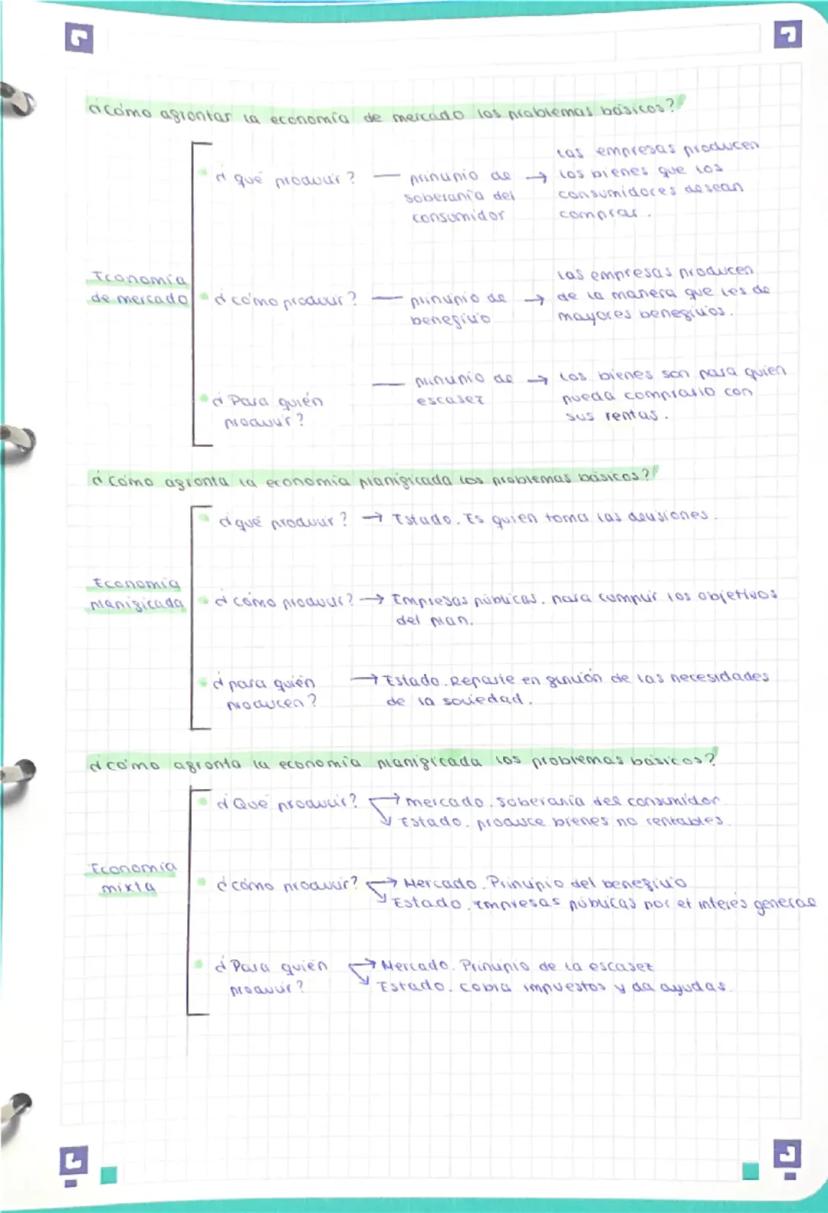 ¿Cómo afrontar la economía de mercado los problemas básicos?
Economía
de mercado
¿qué producir? — principio de
soberanía del
consumidor
→ Las empresas producen
los bienes que los
consumidores desean
comprar.
¿cómo producir? — principio de
beneficio
→ Las empresas producen
de la manera que les de
mayores beneficios.
¿Para quién
producir?
— principio de
escasez
→ Los bienes son para quien
pueda comprarlo con
sus rentas.
¿Cómo afronta la economía planificada los problemas básicos?
Economía
planificada
¿qué producir? → Estado. Es quien toma las decisiones.
¿cómo producir? → Empresas públicas, para cumplir los objetivos
del plan.
¿para quién
producen?
→ Estado. Reparte en función de las necesidades
de la sociedad.
¿cómo afronta la economía planificada los problemas básicos?
Economía
mixta
¿Qué producir? → mercado. Soberanía del consumidor
↘ Estado. produce bienes no rentables.
¿cómo producir? → Mercado. Principio del beneficio
↘ Estado. Empresas públicas por el interés general
¿Para quién
producir?
→ Mercado. Principio de la escasez
↘ Estado. cobra impuestos y da ayudas.